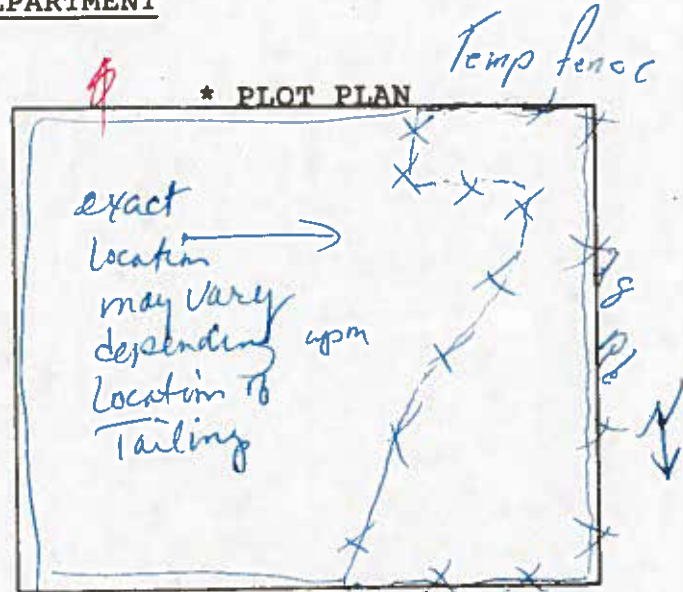 EPARTMENT
Temp fence
* PLOT PLAN
exact
location
may vary
depending upon
Location of
Tailing
N